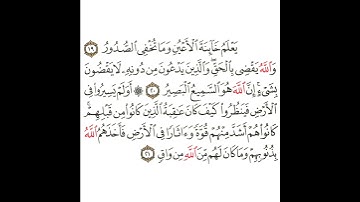 يَعْلَمُ خَآئِنَةَ ٱلْأَعْيُنِ وَمَا تُخْفِى ٱلصُّدُورُ ١٩
وَٱللَّهُ يَقْضِى بِٱلْحَقِّ وَٱلَّذِينَ يَدْعُونَ مِن دُونِهِۦ لَا يَقْضُونَ
بِشَىْءٍ إِنَّ ٱللَّهَ هُوَ ٱلسَّمِيعُ ٱلْبَصِيرُ ٢٠ ۞ أَوَلَمْ يَسِيرُوا۟ فِى
ٱلْأَرْضِ فَيَنظُرُوا۟ كَيْفَ كَانَ عَٰقِبَةُ ٱلَّذِينَ كَانُوا۟ مِن قَبْلِهِمْ
كَانُوا۟ هُمْ أَشَدَّ مِنْهُمْ قُوَّةً وَءَاثَارًا فِى ٱلْأَرْضِ فَأَخَذَهُمُ ٱللَّهُ
بِذُنُوبِهِمْ وَمَا كَانَ لَهُم مِّنَ ٱللَّهِ مِن وَاقٍ ٢١